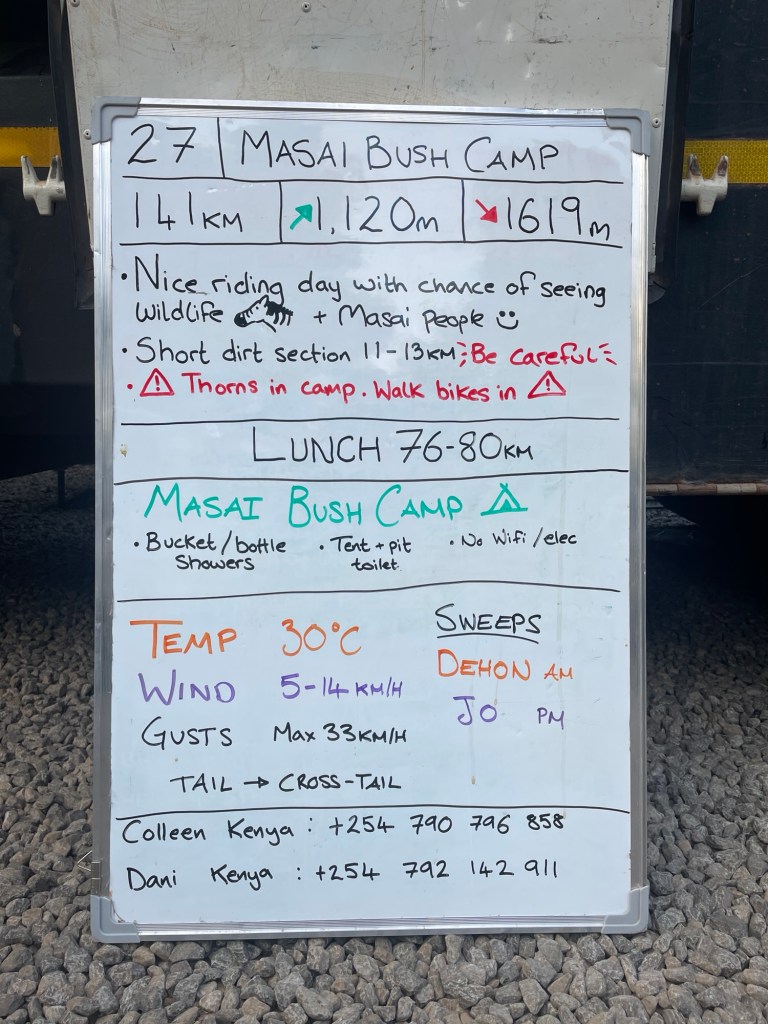 27 MASAI BUSH CAMP
141KM ↗1,120m ↘1619m
• Nice riding day with chance of seeing
wildlife + Masai people
• Short dirt section 11-13KM; Be careful
• Thorns in camp. Walk bikes in
LUNCH 76-80KM
MASAI BUSH CAMP
• Bucket/bottle • Tent + pit • No Wifi/elec
Showers toilet
SWEEPS
TEMP 30°C
DEHON AM
WIND 5-14 KM/H
JO PM
GUSTS Max 33KM/H
TAIL → CROSS-TAIL
Colleen Kenya : +254 790 796 858
Dani Kenya : +254 792 142 911